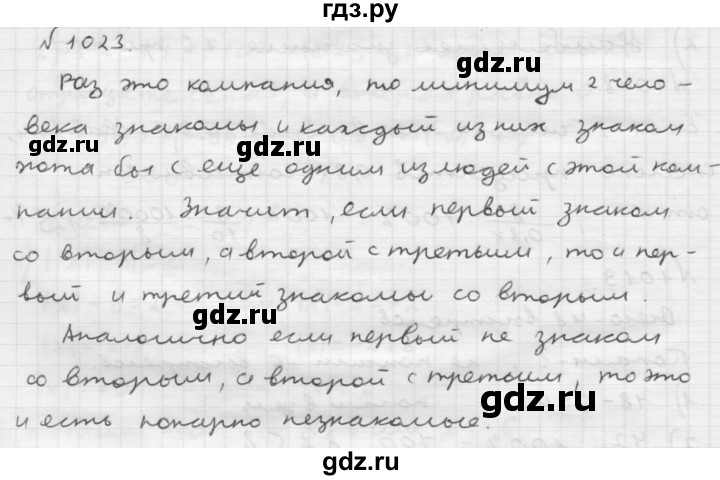 гдз.ру
№ 1023.
Раз это компания, то минимум 2 чело-
века знакомы и каждый из них знаком
хотя бы с еще одним из людей с этой ком-
пании. Значит, если первый знаком
со вторым, а второй с третьим, то и пер-
вый и третий знакомы со вторым.
Аналогично если первый не знаком
со вторым, а второй с третьим, то это
и есть попарно незнакомые.
gdz.ru
gdz.ru
gdz.ru
gdz.ru
gdz.ru
gdz.ru